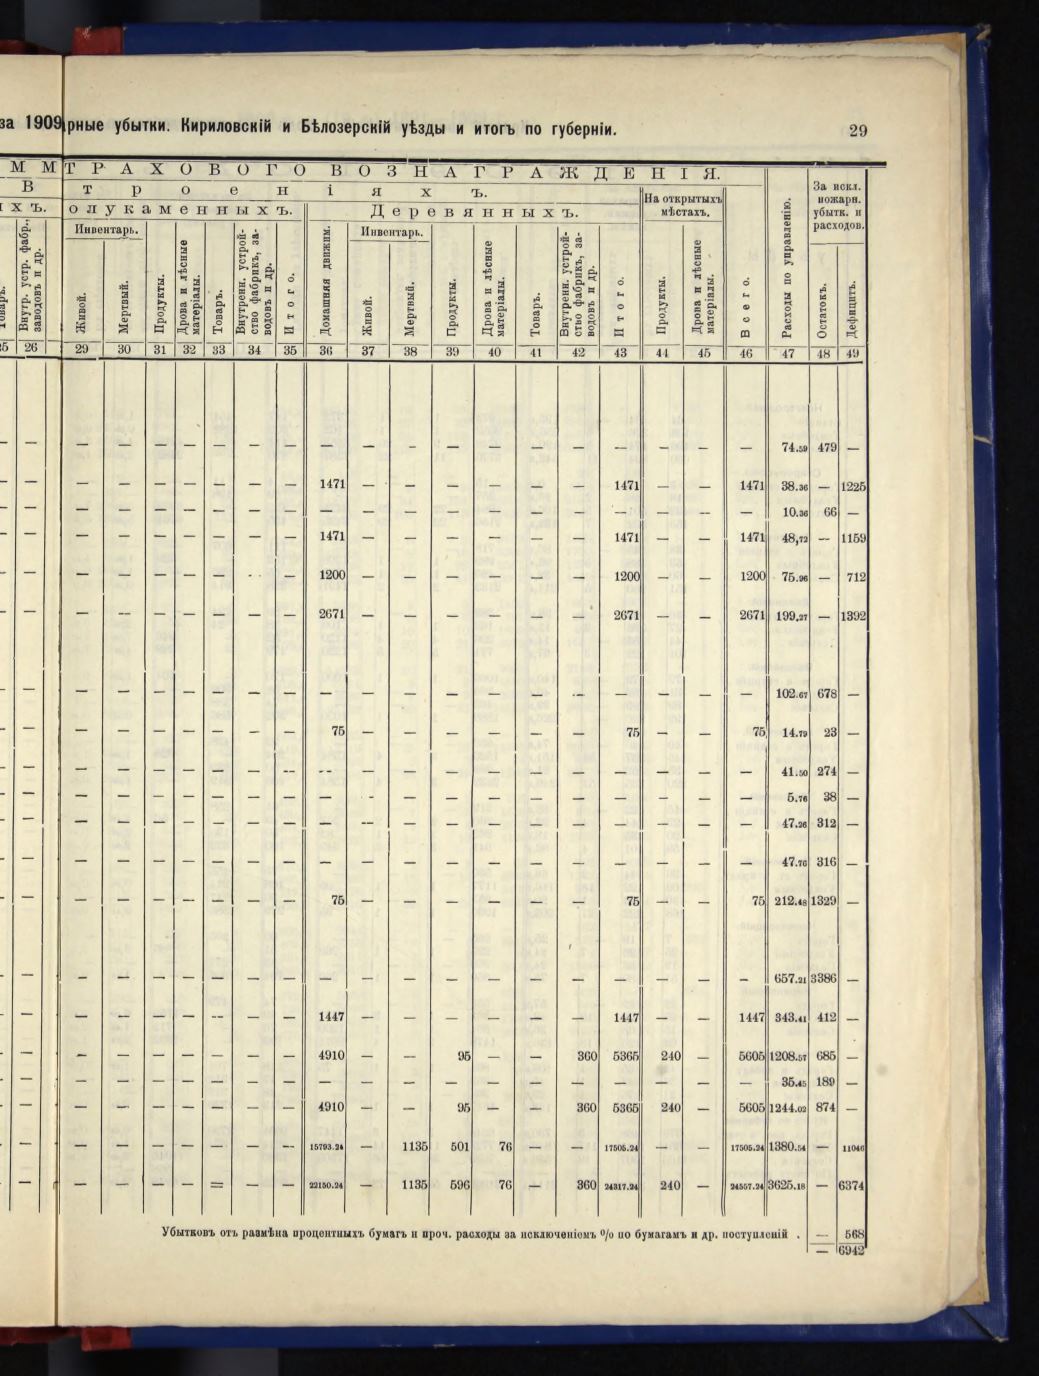 за 1909 рные убытки. Кириловскій и Бѣлозерскій уѣзды и итогъ по губерніи. 29
М М Т Р А Х О В О Г О В О З Н А Г Р А Ж Д Е Н І Я.
В т р о е н і я х ъ. На открытыхъ мѣстахъ. За искл. пожарн. убытк. и расходов.
хъ. олукаменныхъ. Деревянныхъ.
Инвентарь. Инвентарь.
Товаръ. Внутр. устр. фабр., заводовъ и др. Живой. Мертвый. Продукты. Дрова и лѣсные матеріалы. Товаръ. Внутренн. устройство фабрикъ, заводовъ и др. Итого. Домашняя движим. Живой. Мертвый. Продукты. Дрова и лѣсные матеріалы. Товаръ. Внутренн. устройство фабрикъ, заводовъ и др. Итого. Продукты. Дрова и лѣсные матеріалы. Всего. Расходы по управленію. Остатокъ. Дефицитъ.
25 26 29 30 31 32 33 34 35 36 37 38 39 40 41 42 43 44 45 46 47 48 49
— — — — — — — — — — — — — — — — — — — — 74.59 479 —
— — — — — — — — — 1471 — — — — — — 1471 — — 1471 38.36 — 1225
— — — — — — — — — — — — — — — — — — — — 10.36 66 —
— — — — — — — — — 1471 — — — — — — 1471 — — 1471 48,72 — 1159
— — — — — — — — — 1200 — — — — — — 1200 — — 1200 75.96 — 712
— — — — — — — — — 2671 — — — — — — 2671 — — 2671 199,27 — 1392
— — — — — — — — — — — — — — — — — — — — 102.67 678 —
— — — — — — — — — 75 — — — — — — 75 — — 75 14.79 23 —
— — — — — — — — — — — — — — — — — — — — 41.50 274 —
— — — — — — — — — — — — — — — — — — — — 5.76 38 —
— — — — — — — — — — — — — — — — — — — — 47.26 312 —
— — — — — — — — — — — — — — — — — — — — 47.76 316 —
— — — — — — — — — 75 — — — — — — 75 — — 75 212.48 1329 —
— — — — — — — — — — — — — — — — — — — — 657.21 3386 —
— — — — — — — — — 1447 — — — — — — 1447 — — 1447 343.41 412 —
— — — — — — — — — 4910 — — 95 — — 360 5365 240 — 5605 1208.57 685 —
— — — — — — — — — — — — — — — — — — — — 35.45 189 —
— — — — — — — — — 4910 — — 95 — — 360 5365 240 — 5605 1244.02 874 —
— — — — — — — — — 15793.24 — 1135 501 76 — — 17505.24 — — 17505.24 1380.54 — 11046
— — — — — — = — — 22150.24 — 1135 596 76 — 360 24317.24 240 — 24557.24 3625.18 — 6374
Убытковъ отъ размѣна процентныхъ бумагъ и проч. расходы за исключеніемъ % по бумагамъ и др. поступленій . — 568
— 6942